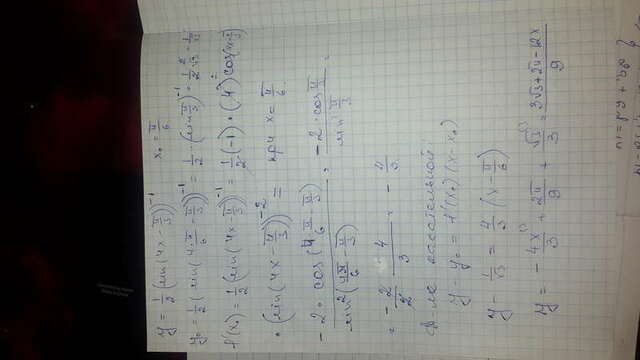 y = 1/2 (sin(4x - π/3))^-1   x₀ = π/6
y₀ = 1/2 (sin(4·π/6 - π/3))^-1 = 1/2 · (sin π/3)^-1 = 1/2 · 2/√3 = 1/√3
f'(x₀) = 1/2 (sin(4x - π/3))^-1 = 1/2 (-1) · (4)' cos(4x - π/3)
· (sin(4x - π/3))^-2 = при x₀ = π/6
-2 · cos(4π/6 - π/3) / sin²(4π/6 - π/3) = -2 · cos π/3 / sin² π/3 =
= -2/2 · 4/3 = -4/3
касательной:
y - y₀ = f'(x₀)(x - x₀)
y - 1/√3 = 4/3 (x - π/6)
y = -4x/3 + 2π/9 + √3/3 = 3√3 + 2π - 12x / 9